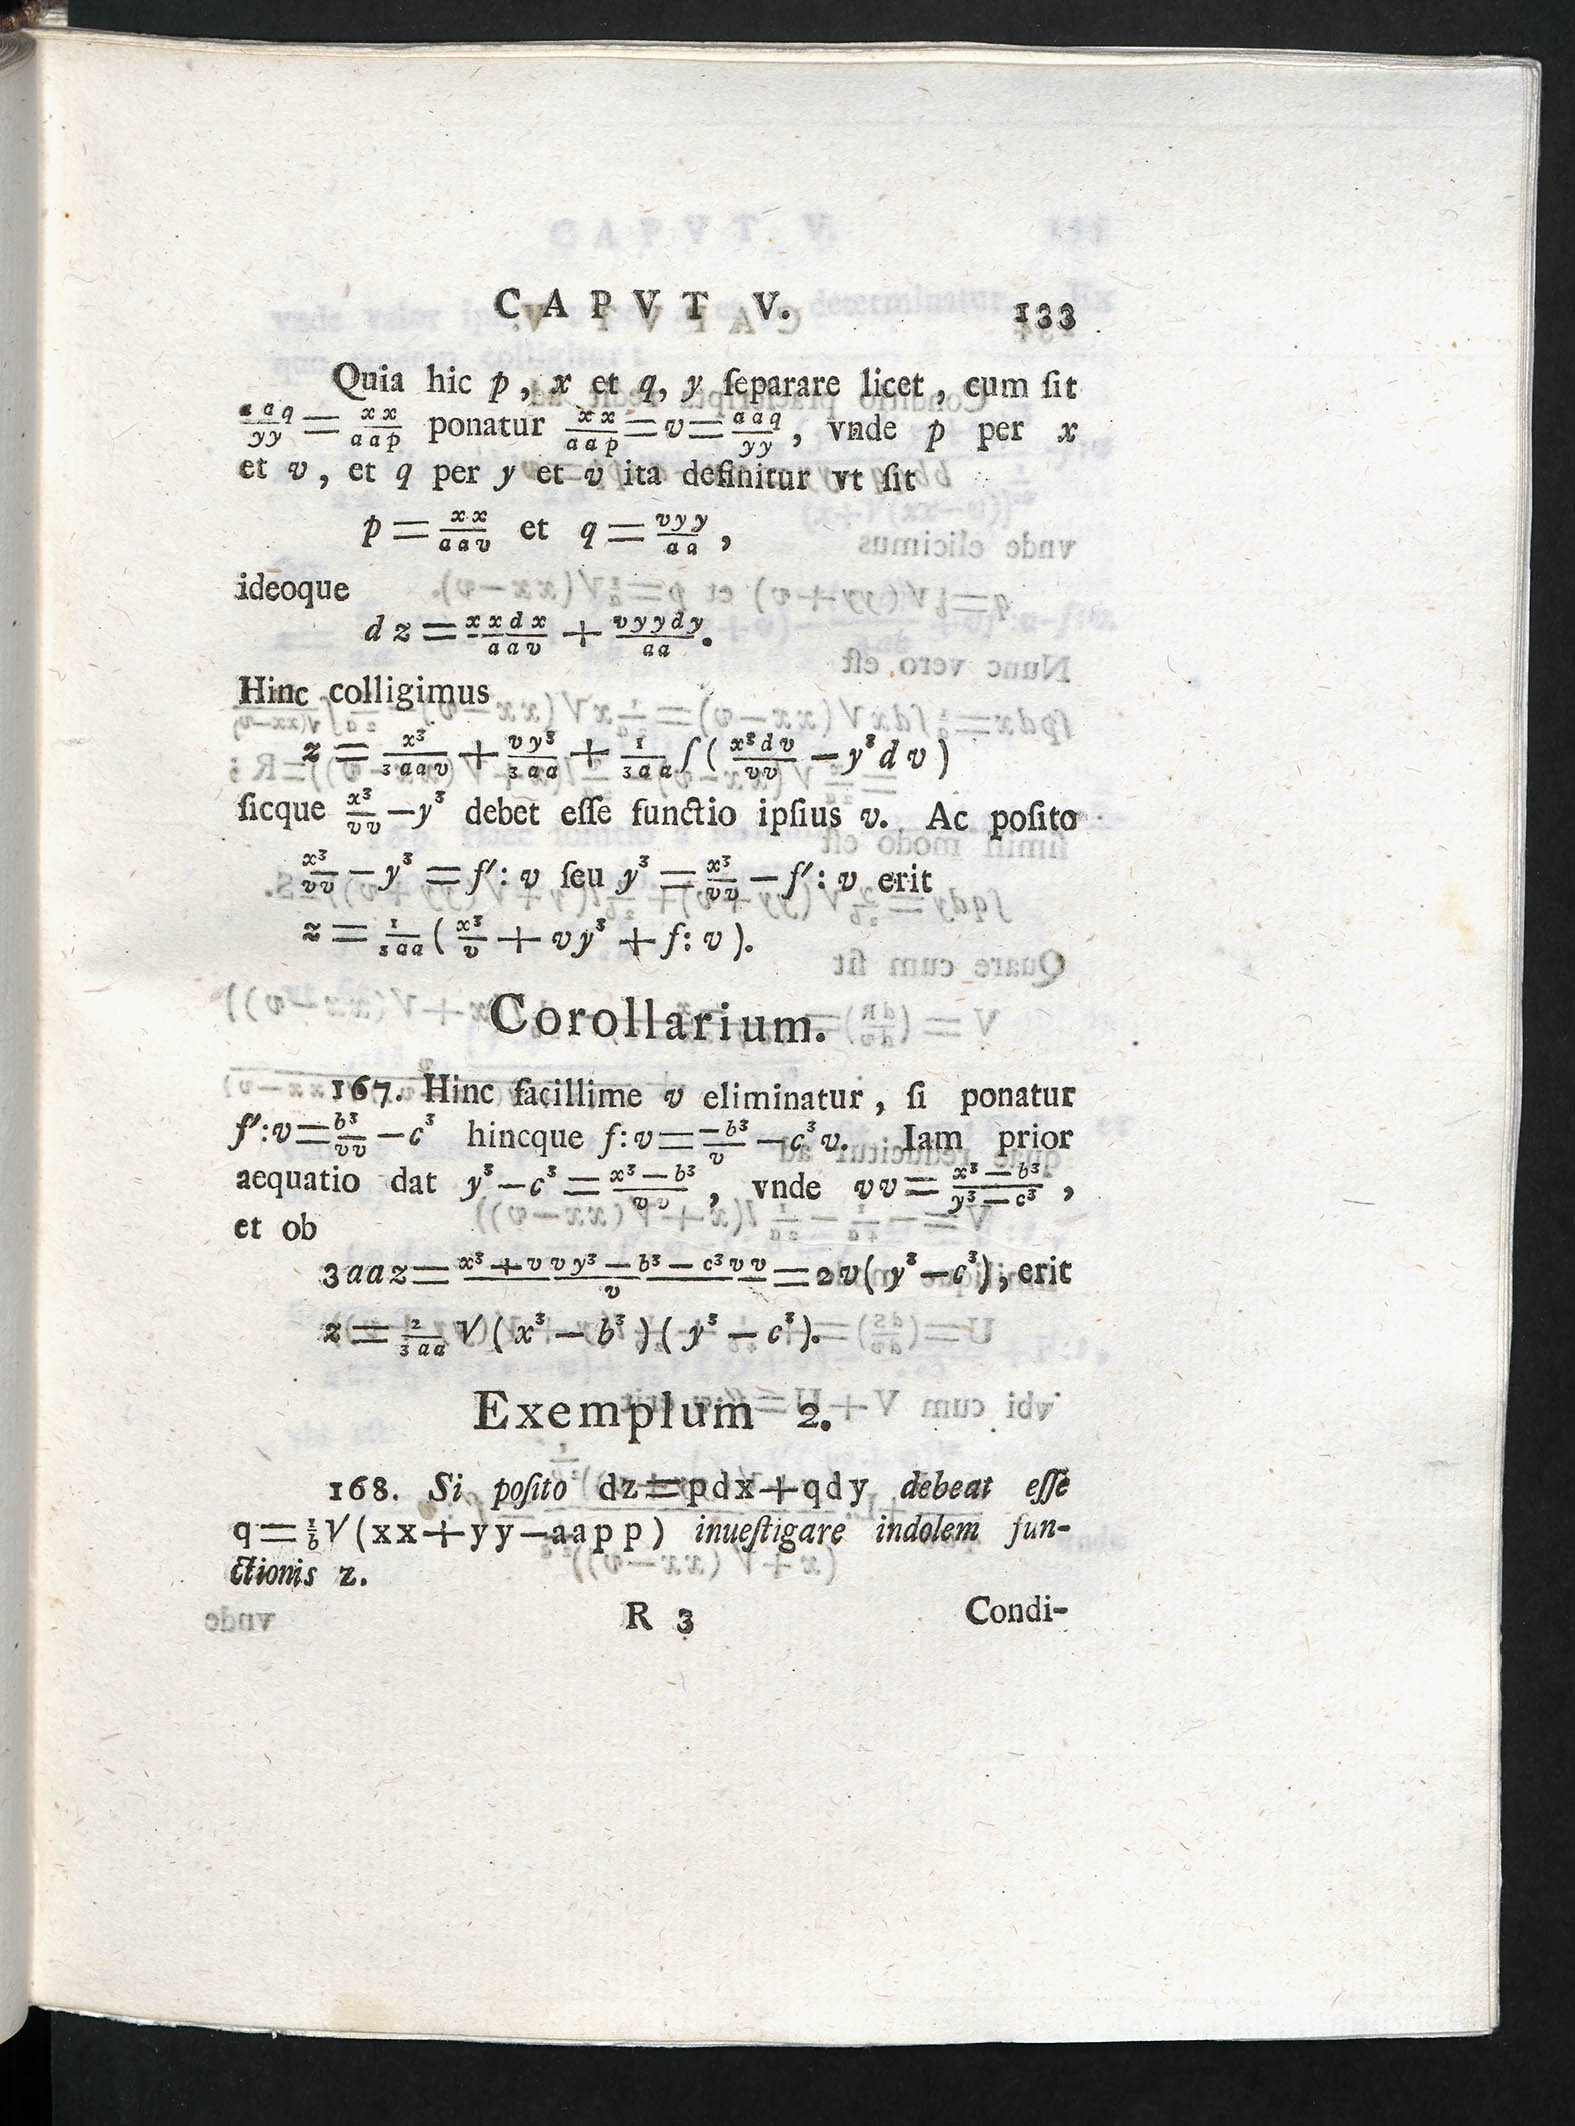 CAPVT V. 133
Quia hic p, x et q, y ſeparare licet, cum ſit
aaq/yy = xx/aap ponatur xx/aap = v = aaq/yy, vnde p per x
et v, et q per y et v ita definitur vt ſit
p = xx/aav et q = vyy/aa,
ideoque
dz = xxdx/aav + vyydy/aa.
Hinc colligimus
z = x³/3aav + vy³/3aa + 1/3aa ∫(x³dv/vv − y³dv)
ſicque x³/vv − y³ debet eſſe functio ipſius v. Ac poſito
x³/vv − y³ = f′: v ſeu y³ = x³/vv − f′: v erit
z = 1/3aa (x³/v + vy³ + f: v).
Corollarium.
167. Hinc facillime v eliminatur, ſi ponatur
f′: v = b³/vv − c³ hincque f: v = −b³/v − c³v. Iam prior
aequatio dat y³ − c³ = x³−b³/vv, vnde vv = x³−b³/y³−c³,
et ob
3aaz = x³+vvy³−b³−c³vv/v = 2v(y³−c³), erit
z = 2/3aa √(x³−b³)(y³−c³).
Exemplum 2.
168. Si poſito dz=pdx+qdy debeat eſſe
q = 1/b √(xx+yy−aapp) inueſtigare indolem fun-
ctionis z.
R 3 Condi-